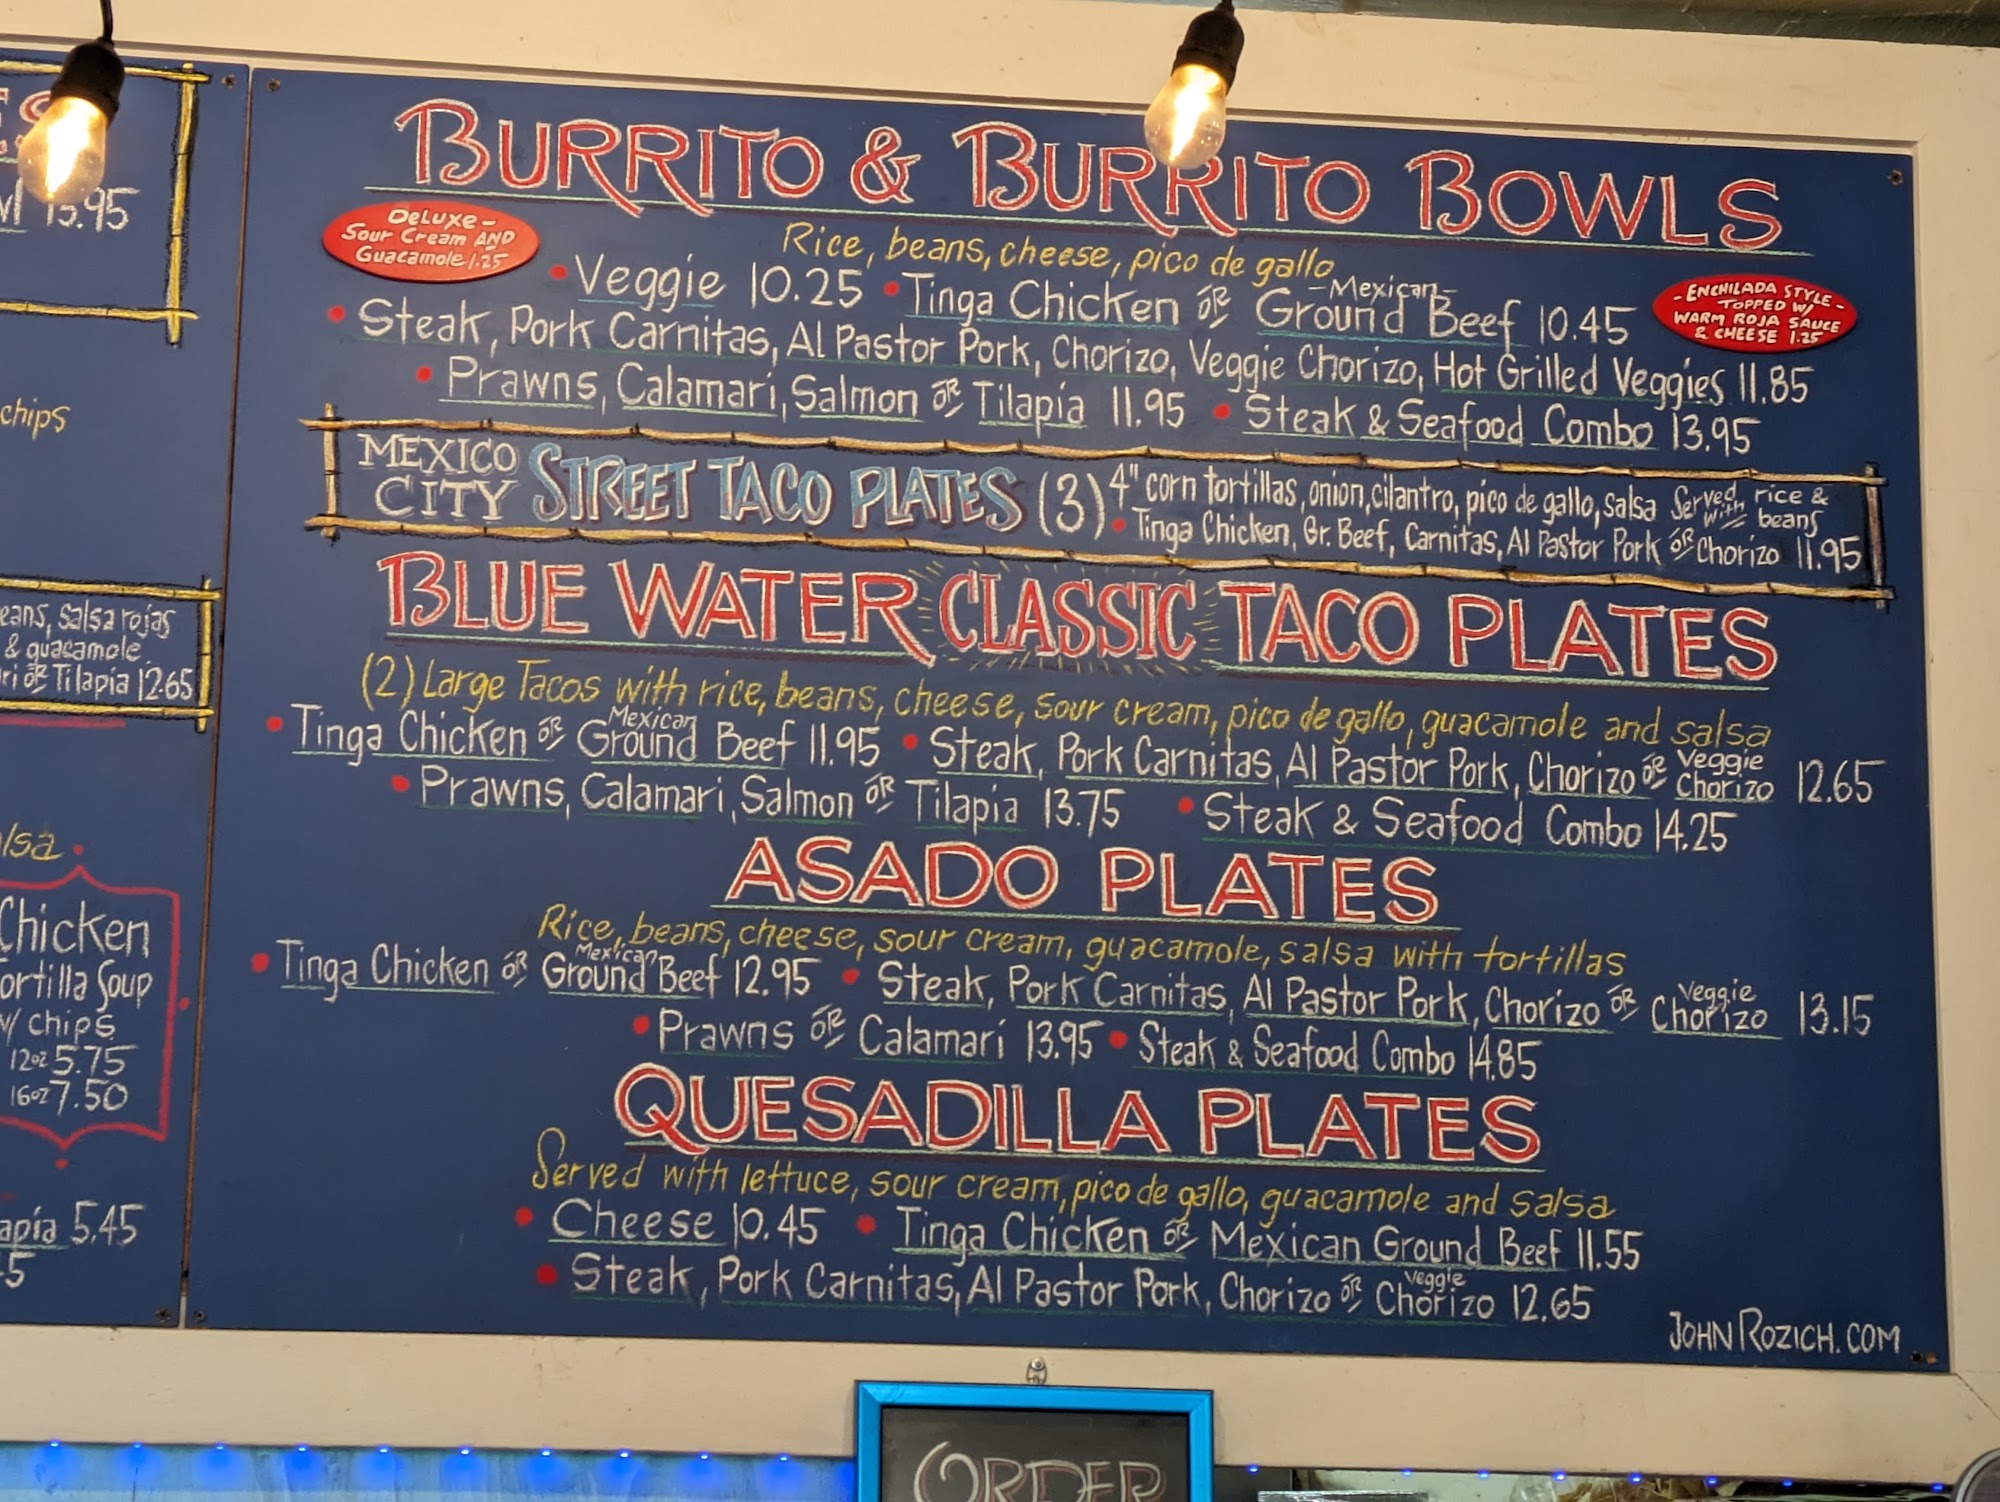 13.95
chips
salsa rojas
& guacamole
OR Tilapia 12.65
Chicken
Tortilla Soup
w/ chips
12oz 5.75
16oz 7.50
5.45
Burrito & Burrito Bowls
Deluxe -
Sour Cream and
Guacamole 1.25
Rice, beans, cheese, pico de gallo
- Enchilada Style -
Topped w/
Warm Roja Sauce
& Cheese 1.25
• Veggie 10.25 • Tinga Chicken or -Mexican- Ground Beef 10.45
• Steak, Pork Carnitas, Al Pastor Pork, Chorizo, Veggie Chorizo, Hot Grilled Veggies 11.85
• Prawns, Calamari, Salmon or Tilapia 11.95 • Steak & Seafood Combo 13.95
Mexico City Street Taco Plates (3) 4" corn tortillas, onion, cilantro, pico de gallo, salsa Served with rice & beans
• Tinga Chicken, Gr. Beef, Carnitas, Al Pastor Pork or Chorizo 11.95
Blue Water Classic Taco Plates
(2) Large Tacos with rice, beans, cheese, sour cream, pico de gallo, guacamole and salsa
• Tinga Chicken or Mexican Ground Beef 11.95 • Steak, Pork Carnitas, Al Pastor Pork, Chorizo or Veggie Chorizo 12.65
• Prawns, Calamari, Salmon or Tilapia 13.75 • Steak & Seafood Combo 14.25
Asado Plates
Rice, beans, cheese, sour cream, guacamole, salsa with tortillas
• Tinga Chicken or Mexican Ground Beef 12.95 • Steak, Pork Carnitas, Al Pastor Pork, Chorizo or Veggie Chorizo 13.15
• Prawns or Calamari 13.95 • Steak & Seafood Combo 14.85
Quesadilla Plates
Served with lettuce, sour cream, pico de gallo, guacamole and salsa
• Cheese 10.45 • Tinga Chicken or Mexican Ground Beef 11.55
• Steak, Pork Carnitas, Al Pastor Pork, Chorizo or Veggie Chorizo 12.65
John Rozich.com
Order